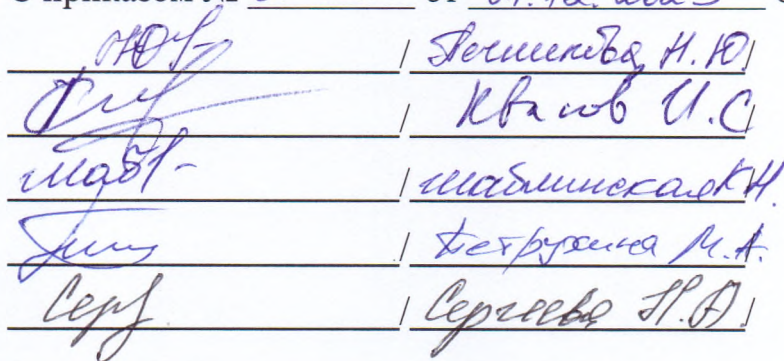 С приказом № от 01.12.2023
/ Печникова Н.Ю/
/ Квасов И.С/
/ Шаблинская К.Н.
/ Петрухина М.А.
/ Сергеева Н.А./